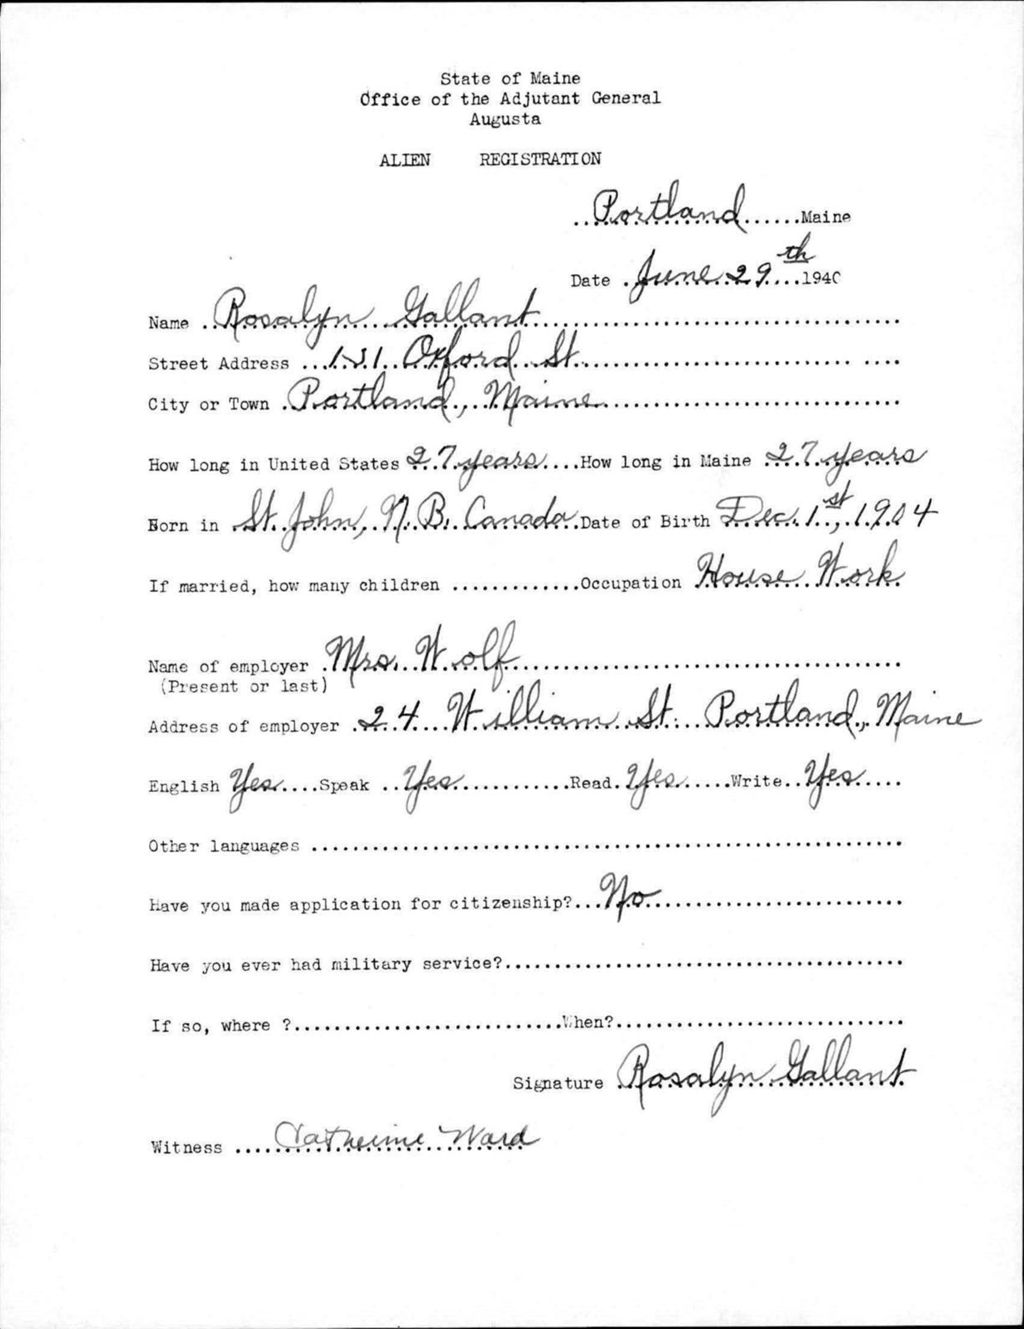 State of Maine
Office of the Adjutant General
Augusta
ALIEN REGISTRATION
Portland Maine
Date June 29th 1940
Name Rosalyn Gallant
Street Address 131 Oxford St.
City or Town Portland, Maine
How long in United States 27 years How long in Maine 27 years
Born in St. John, N.B. Canada Date of Birth Dec. 1st, 1904
If married, how many children Occupation House Work
Name of employer Mrs. Wolf
(Present or last)
Address of employer 24 William St. Portland, Maine
English Yes Speak Yes Read Yes Write Yes
Other languages
Have you made application for citizenship? No
Have you ever had military service?
If so, where ? When?
Signature Rosalyn Gallant
Witness Catherine Ward